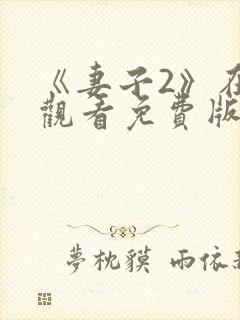 《妻子2》在
觀看免費版
夢枕貘 雨依